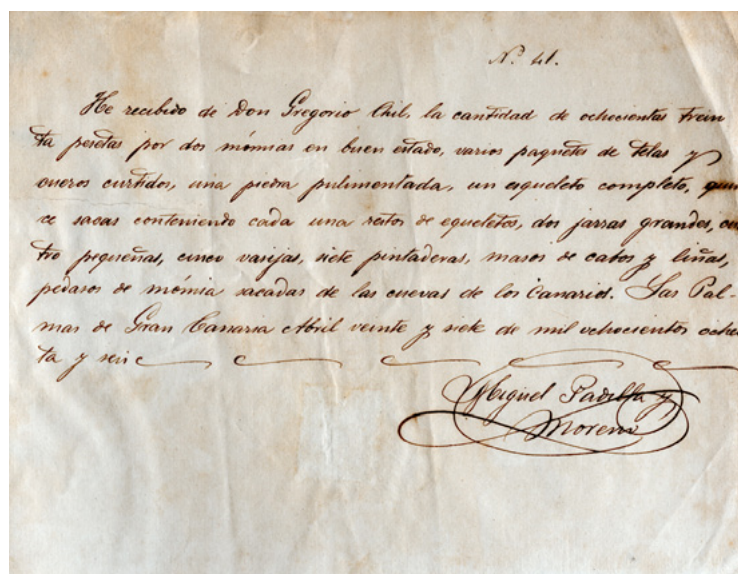 N.º 41.
He recibido de Don Gregorio Chil, la cantidad de ochocientas trein
ta pesetas por dos mómias en buen estado, varios paquetes de telas y
cueros curtidos, una piedra pulimentada, un esqueleto completo, quin
ce sacas conteniendo cada una restos de equeletos, dos jarras grandes, cua
tro pequeñas, cinco varijas, siete pintaderas, masos de cabos y liñas,
pedasos de mómia sacadas de las cuevas de los Canarios. Las Pal-
mas de Gran Canaria Abril veinte y siete de mil ochocientos ochen
ta y seis
Miguel Padilla y
Moreno